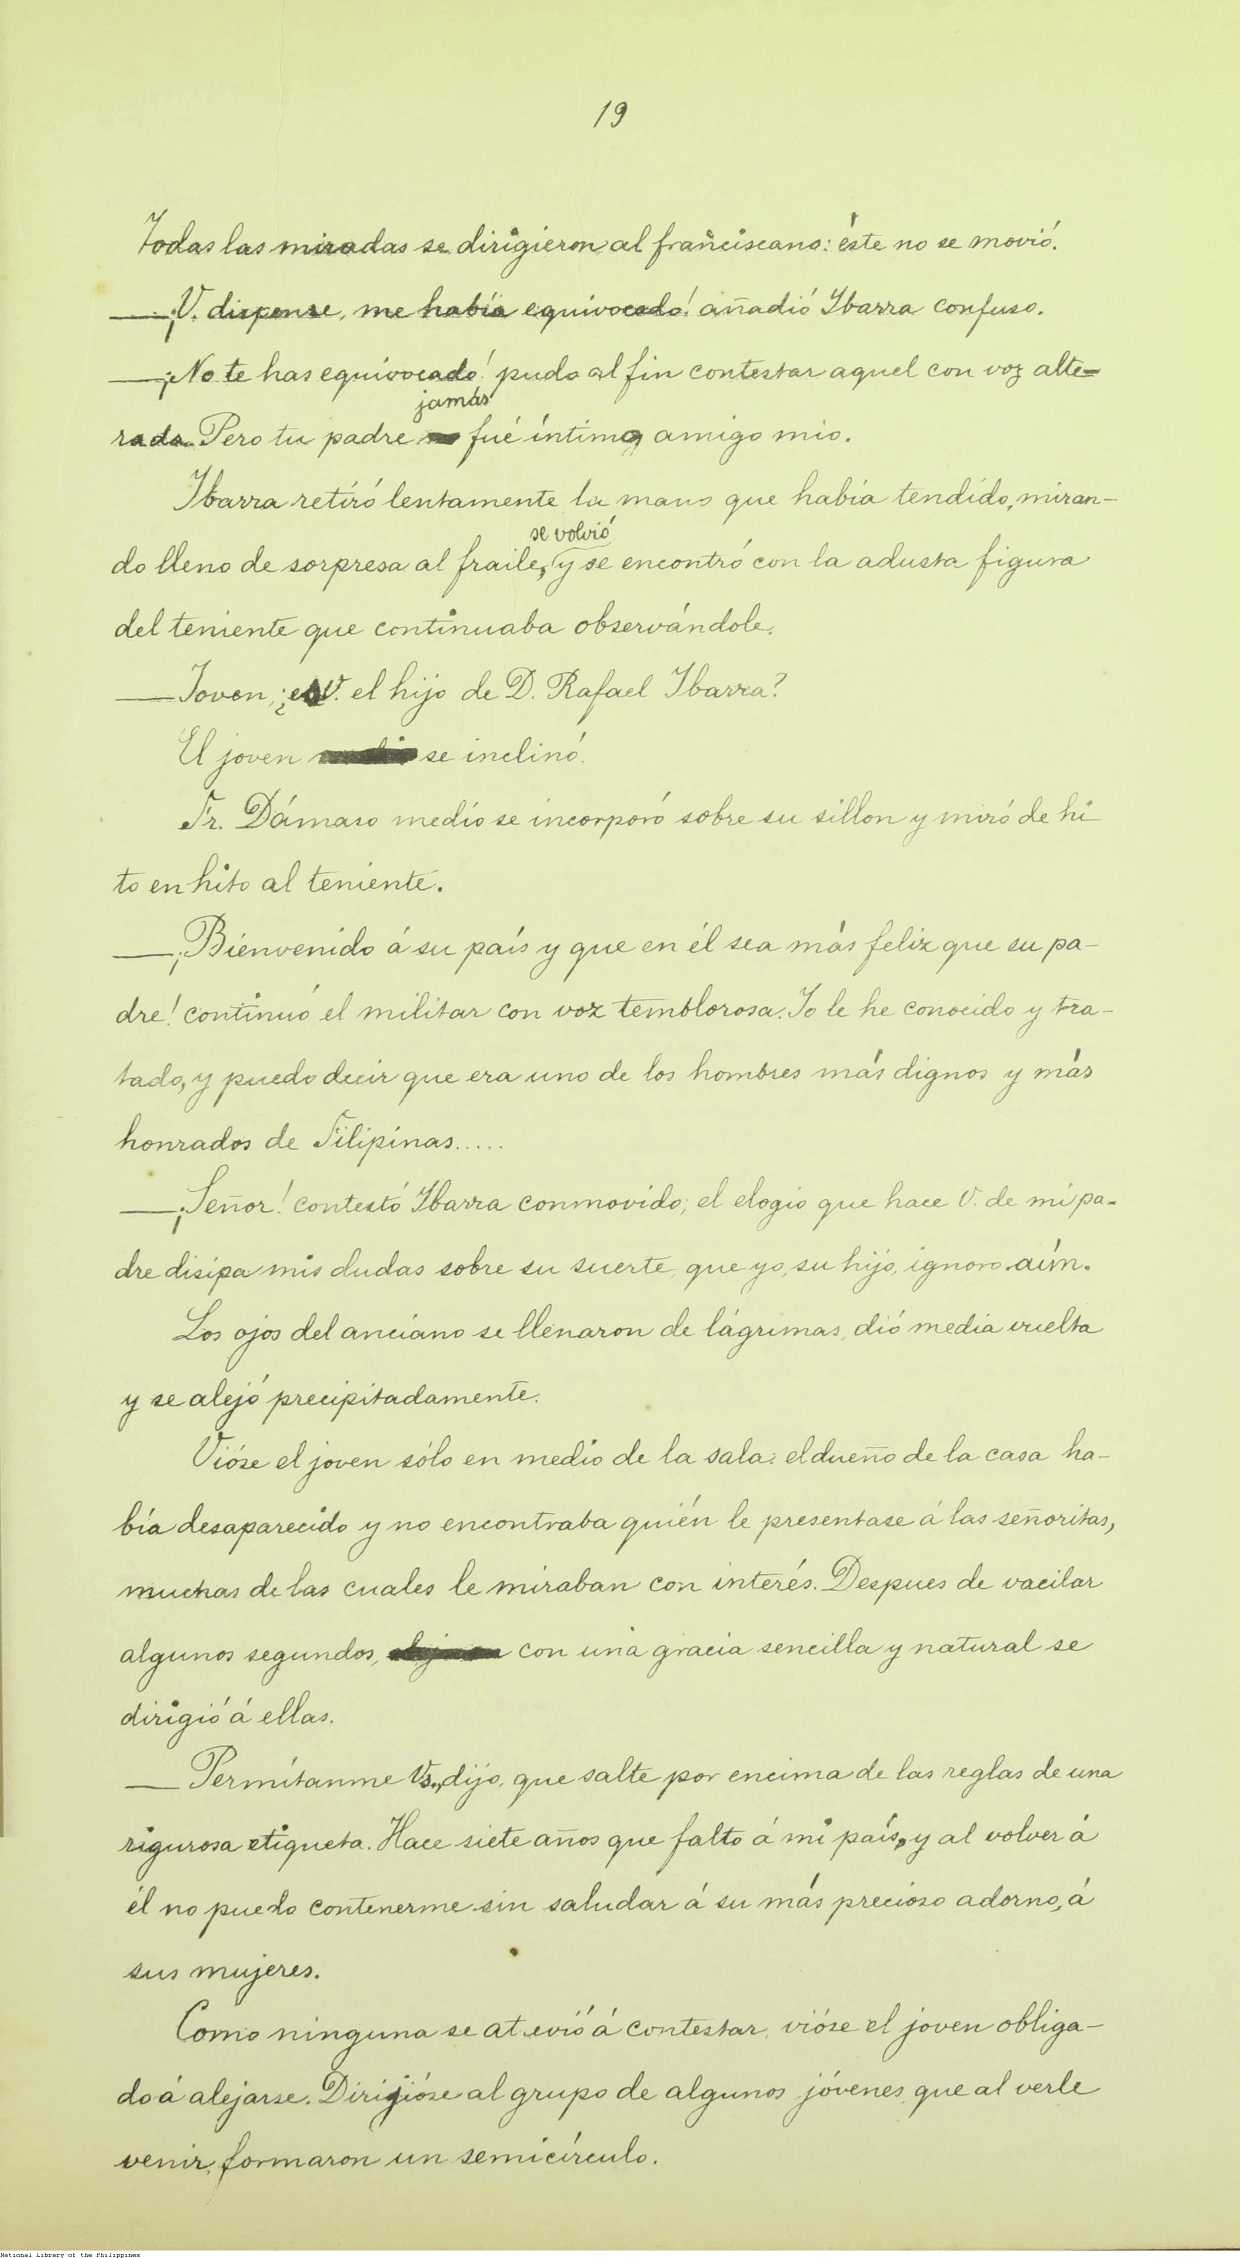 19
Todas las miradas se dirigieron al franciscano: éste no se movió.
—¡V. dispense, me había equivocado! añadió Ibarra confuso.
—¡No te has equivocado! pudo al fin contestar aquel con voz alte-
jamás
rada. Pero tu padre fué íntimo amigo mio.
Ibarra retiró lentamente la mano que había tendido, miran-
se volvió
do lleno de sorpresa al fraile, y se encontró con la adusta figura
del teniente que continuaba observándole.
—Joven, ¿es V. el hijo de D. Rafael Ibarra?
El joven se inclinó.
Fr. Dámaso medio se incorporó sobre su sillon y miró de hi
to en hito al teniente.
—¡Bienvenido á su país y que en él sea más feliz que su pa-
dre! continuó el militar con voz temblorosa. Yo le he conocido y tra-
tado, y puedo decir que era uno de los hombres más dignos y más
honrados de Filipinas.....
—¡Señor! contestó Ibarra conmovido; el elogio que hace V. de mi pa-
dre disipa mis dudas sobre su suerte, que yo, su hijo, ignoro aún.
Los ojos del anciano se llenaron de lágrimas, dió media vuelta
y se alejó precipitadamente.
Vióse el joven sólo en medio de la sala: el dueño de la casa ha-
bía desaparecido y no encontraba quién le presentase á las señoritas,
muchas de las cuales le miraban con interés. Despues de vacilar
algunos segundos, con una gracia sencilla y natural se
dirigió á ellas.
— Permítanme Vs., dijo, que salte por encima de las reglas de una
rigurosa etiqueta. Hace siete años que falto á mi país, y al volver á
él no puedo contenerme sin saludar á su más precioso adorno, á
sus mujeres.
Como ninguna se atrevió á contestar, vióse el joven obliga-
do á alejarse. Dirigióse al grupo de algunos jóvenes, que al verle
venir, formaron un semicírculo.
National Library of the Philippines